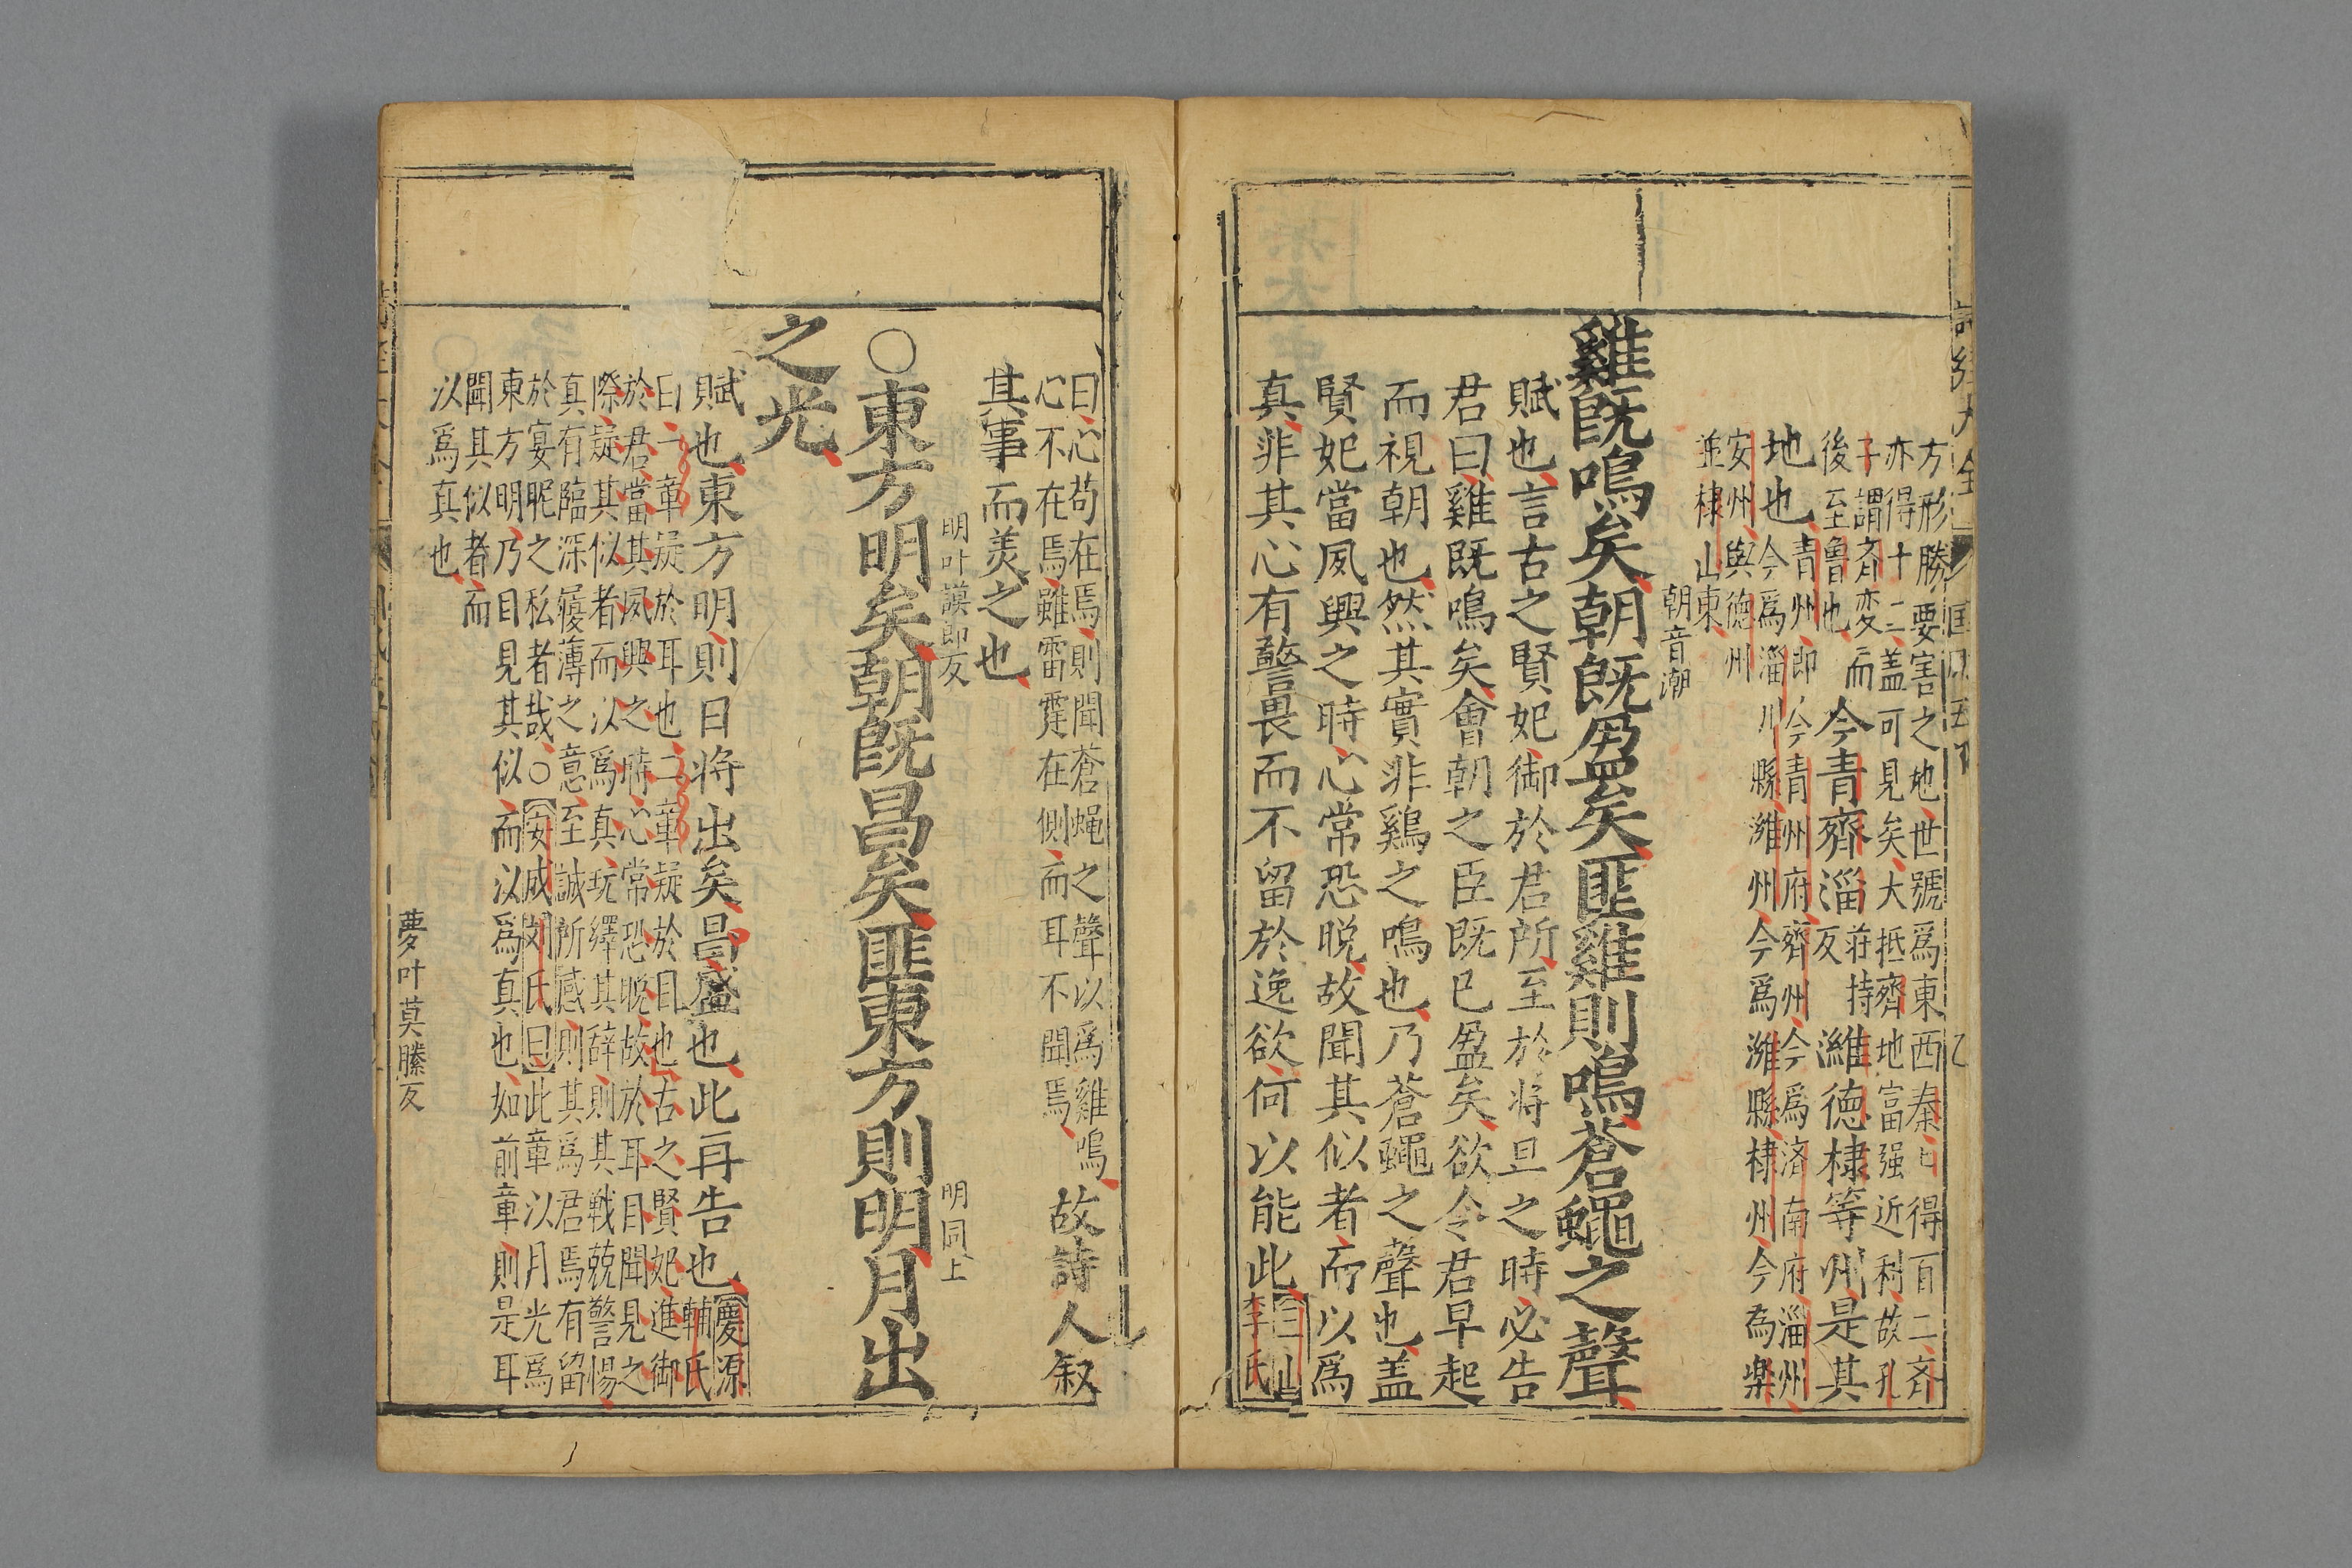 方形勝要害之地世號爲東西秦曰得百二齊
亦得十二蓋可見矣大抵齊地富强近利故孔
子謂齊変而
後至魯也
今青齊淄
荘持
反
濰德棣等州是其
地也
青州即今青州府齊州今爲済南府淄州
今爲淄川縣濰州今爲濰縣棣州今為楽
安州與德州
並棣山東
朝音潮
雞既鳴矣朝既盈矣匪雞則鳴蒼蠅之聲
賦也言古之賢妃御於君所至於將旦之時必告
君曰雞既鳴矣會朝之臣既已盈矣欲令君早起
而視朝也然其實非鷄之鳴也乃蒼蠅之聲也盖
賢妃當夙興之時心常恐晚故聞其似者而以爲
真非其心有警畏而不留於逸欲何以能此
三山
李氏
曰心苟在焉則聞蒼蝇之聲以爲雞鳴
心不在焉雖雷霆在側而耳不聞焉
故詩人叙
其事而美之也
明叶謨郎反
明同上
○東方明矣朝既昌矣匪東方則明月出
之光
賦也東方明則日将出矣昌盛也此再告也
慶源
輔氏
曰一章疑於耳也二章疑於目也古之賢妃進御
於君當其夙興之時心常恐晚故於耳目聞見之
際疑其似者而以爲真玩繹其辭則其戦兢警惕
真有臨深履薄之意至誠所感則其爲君焉有留
於宴昵之私者哉○安成刘氏曰此章以月光爲
東方明乃目見其似而以爲真也如前章則是耳
聞其似者而
以爲真也
夢叶莫滕反